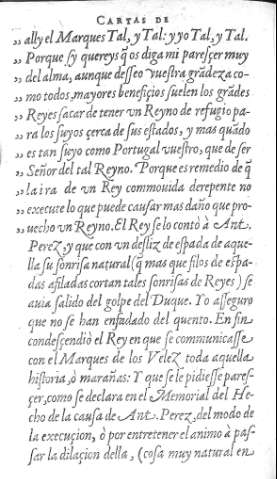 CARTAS DE
„ ally el Marques Tal, y Tal: y yo Tal, y Tal.
„ Porque sy quereys q̃ os diga mi paresçer muy
„ del alma, aunque desseo vuestra grãdeza co-
„ mo todos, mayores benefiçios suelen los grãdes
„ Reyes sacar de tener vn Reyno de refugio pa-
„ ra los suyos çerca de sus estados, y mas quãdo
„ es tan suyo como Portugal vuestro, que de ser
„ Señor del tal Reyno. Porque es remedio de q̃
„ la ira de vn Rey commouida derepente no
„ execute lo que puede causar mas daño que pro-
„ uecho vn Reyno. El Rey se lo contò à Ant.
Perez, y que con vn desliz de espada de aque-
lla su sonrisa natural (q̃ mas que filos de espa-
das afiladas cortan tales sonrisas de Reyes) se
auia salido del golpe del Duque. Yo asseguro
que no se han enfadado del quento. En fin
condesçendiò el Rey en que se communicasse
con el Marques de los Velez toda aquella
historia, ò marañas: Y que se le pidiesse pares-
çer, como se declara en el Memorial del He-
cho de la causa de Ant. Perez, del modo de
la execuçion, ò por entretener el animo à pas-
sar la dilaçion della, (cosa muy natural en